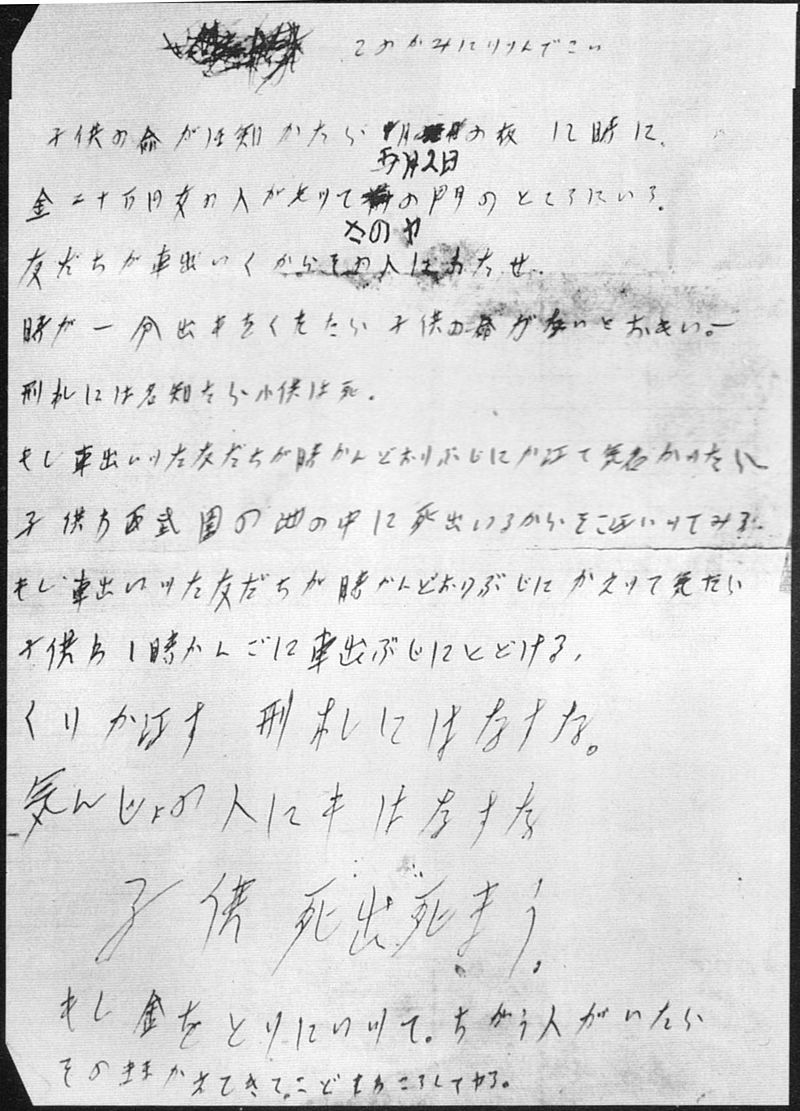 このかみにツツんでこい
子供の命がほ知かたら の夜 12時に、
五月2日
金二十万円女の人がもツて の門のところにいろ。
さのヤ
友だちが車出いくからその人にわたせ。
時が一分出もをくれたら子供の命がないとおもい。ー
刑札には名知たら小供は死。
もし車出いツた友だちが時かんどおりぶじにかえて気名かツたら
子供わ西武園の池の中に死出いるからそこエいツてみろ。
もし車出いツた友だちが時かんどおりぶじにかえツて気たら
子供わ1時かんごに車出ぶじにとどける、
くりかえす 刑札にはなすな。
気んじょの人にもはなすな
子供死出死まう。
もし金をとりにいツて。ちがう人がいたら
そのままかえてきて。こどもわころしてヤる。